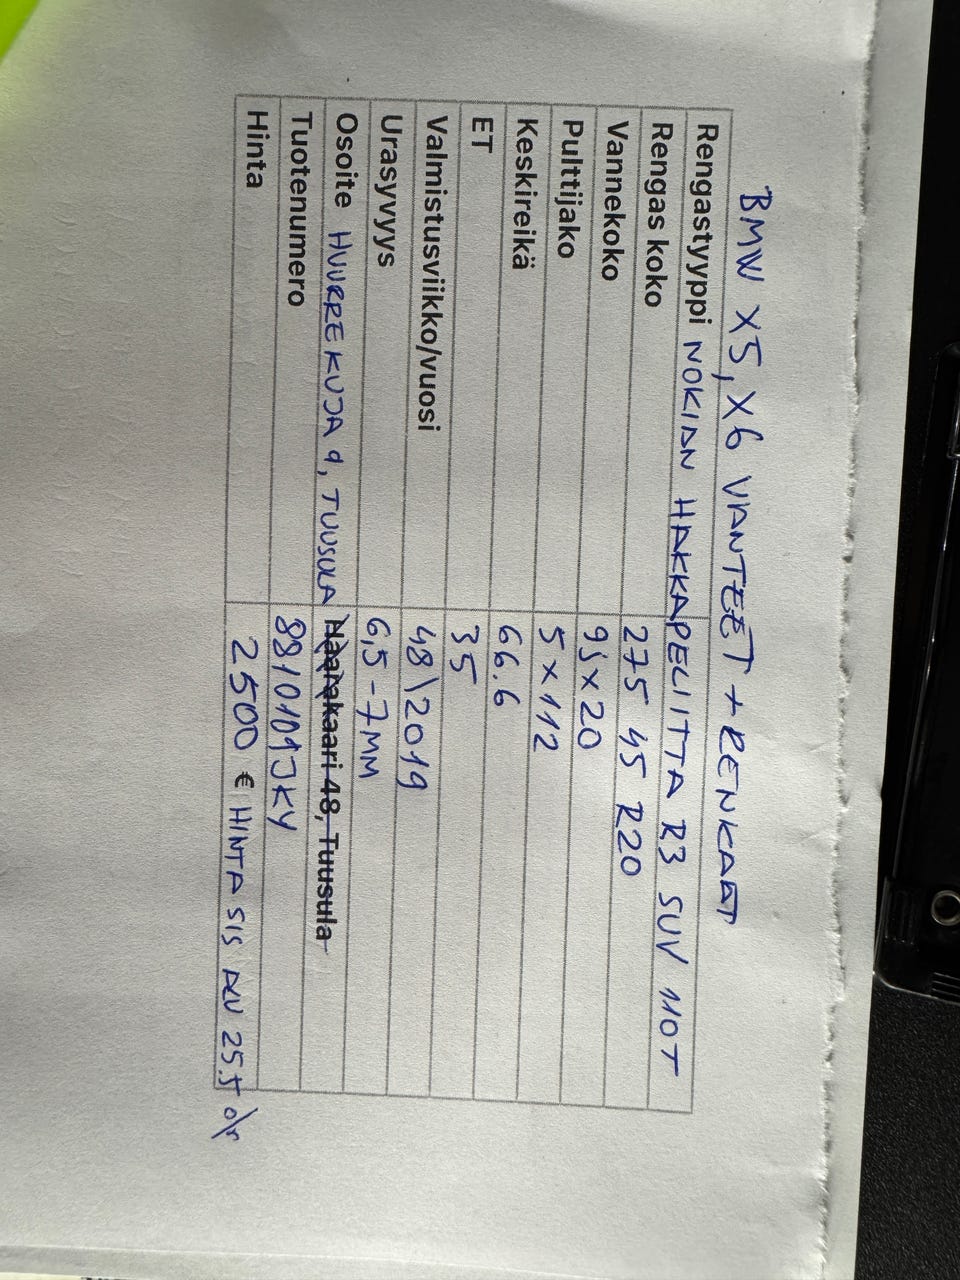 BMW X5, X6 VANTEET + RENKAAT
Rengastyyppi NOKIAN HAKKAPELITTA R3 SUV 110T
Rengas koko 275 45 R20
Vannekoko 9j x 20
Pulttijako 5 x 112
Keskireikä 66.6
ET 35
Valmistusviikko/vuosi 48\2019
Urasyvyys 6,5 - 7 MM
Osoite HUURREKUJA 9, TUUSULA Haarakaari 48, Tuusula
Tuotenumero 8810101JKY
Hinta 2500 € HINTA SIS ALV 25.5 %